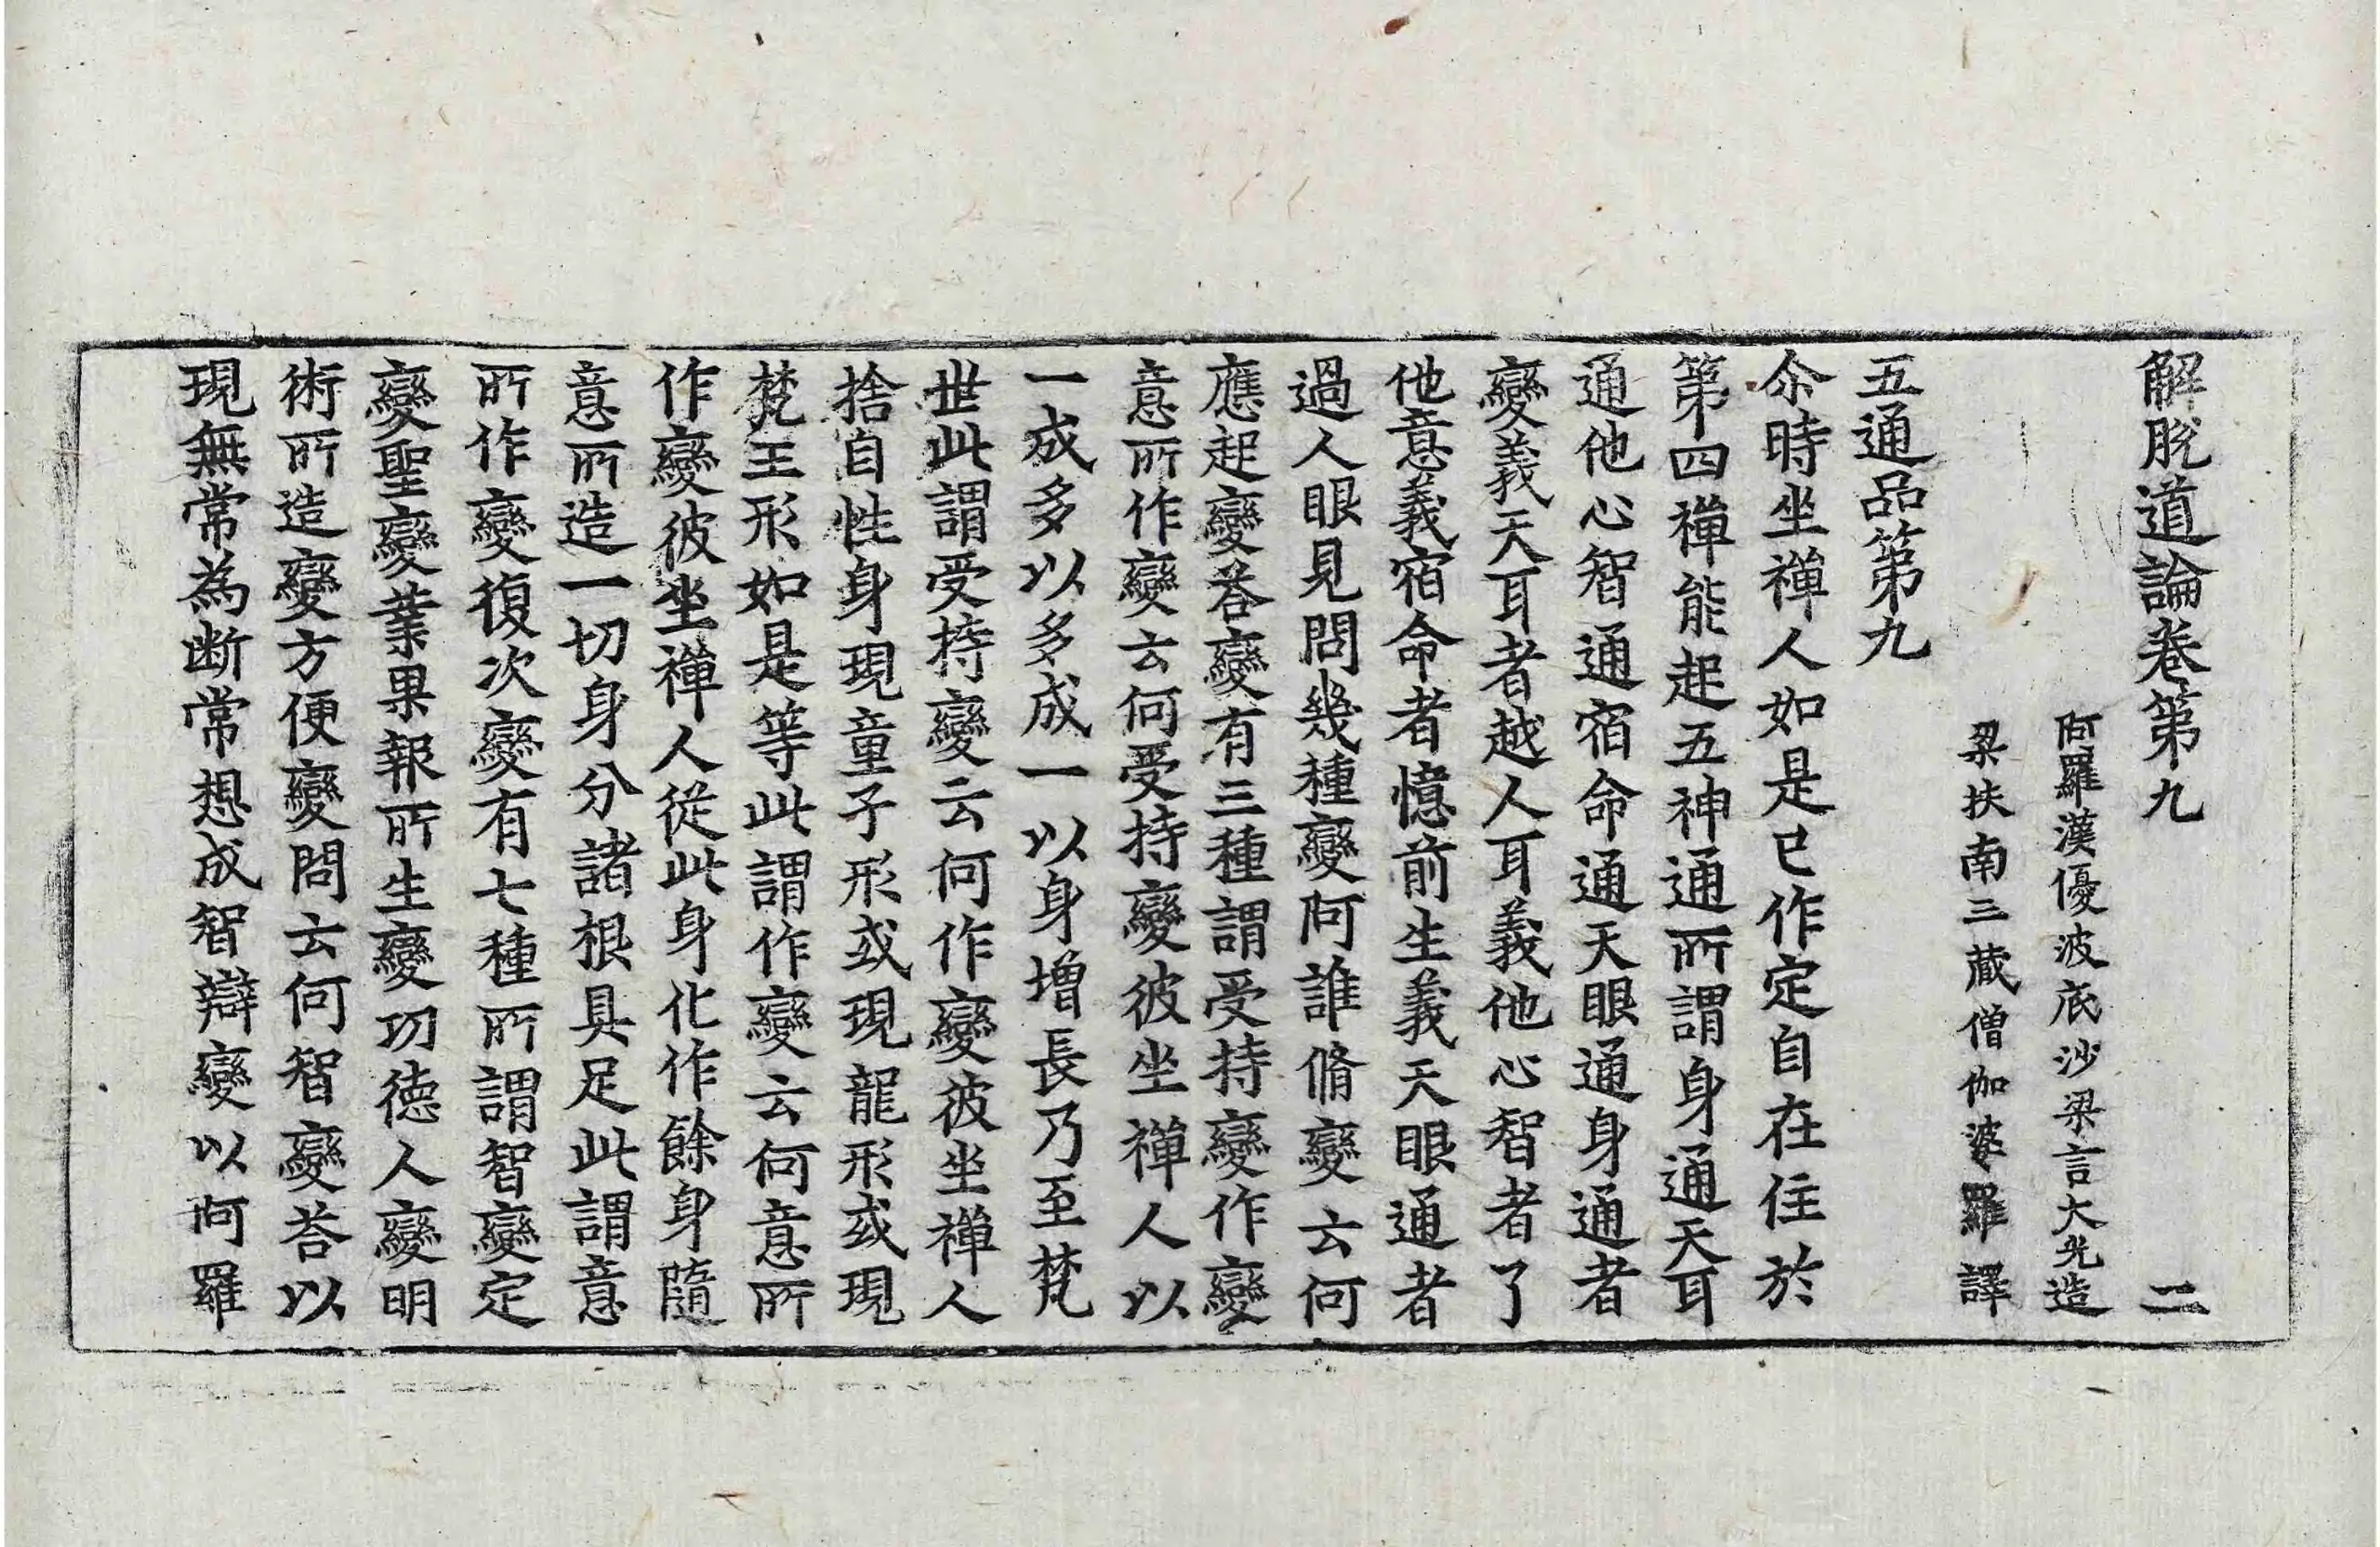 解脫道論卷第九 二
阿羅漢優波底沙梁言大光造
梁扶南三藏僧伽婆羅譯
五通品第九
尒時坐禪人如是已作定自在住於
第四禪能起五神通所謂身通天耳
通他心智通宿命通天眼通身通者
變義天耳者越人耳義他心智者了
他意義宿命者憶前生義天眼通者
過人眼見問幾種變阿誰脩變云何
應起變荅變有三種謂受持變作變
意所作變云何受持變彼坐禪人以
一成多以多成一以身增長乃至梵
世此謂受持變云何作變彼坐禪人
捨自性身現童子形或現龍形或現
梵王形如是等此謂作變云何意所
作變彼坐禪人從此身化作餘身隨
意所造一切身分諸根具足此謂意
所作變復次變有七種所謂智變定
變聖變業果報所生變功德人變明
術所造變方便變問云何智變荅以
現無常為斷常想成智辯變以阿羅